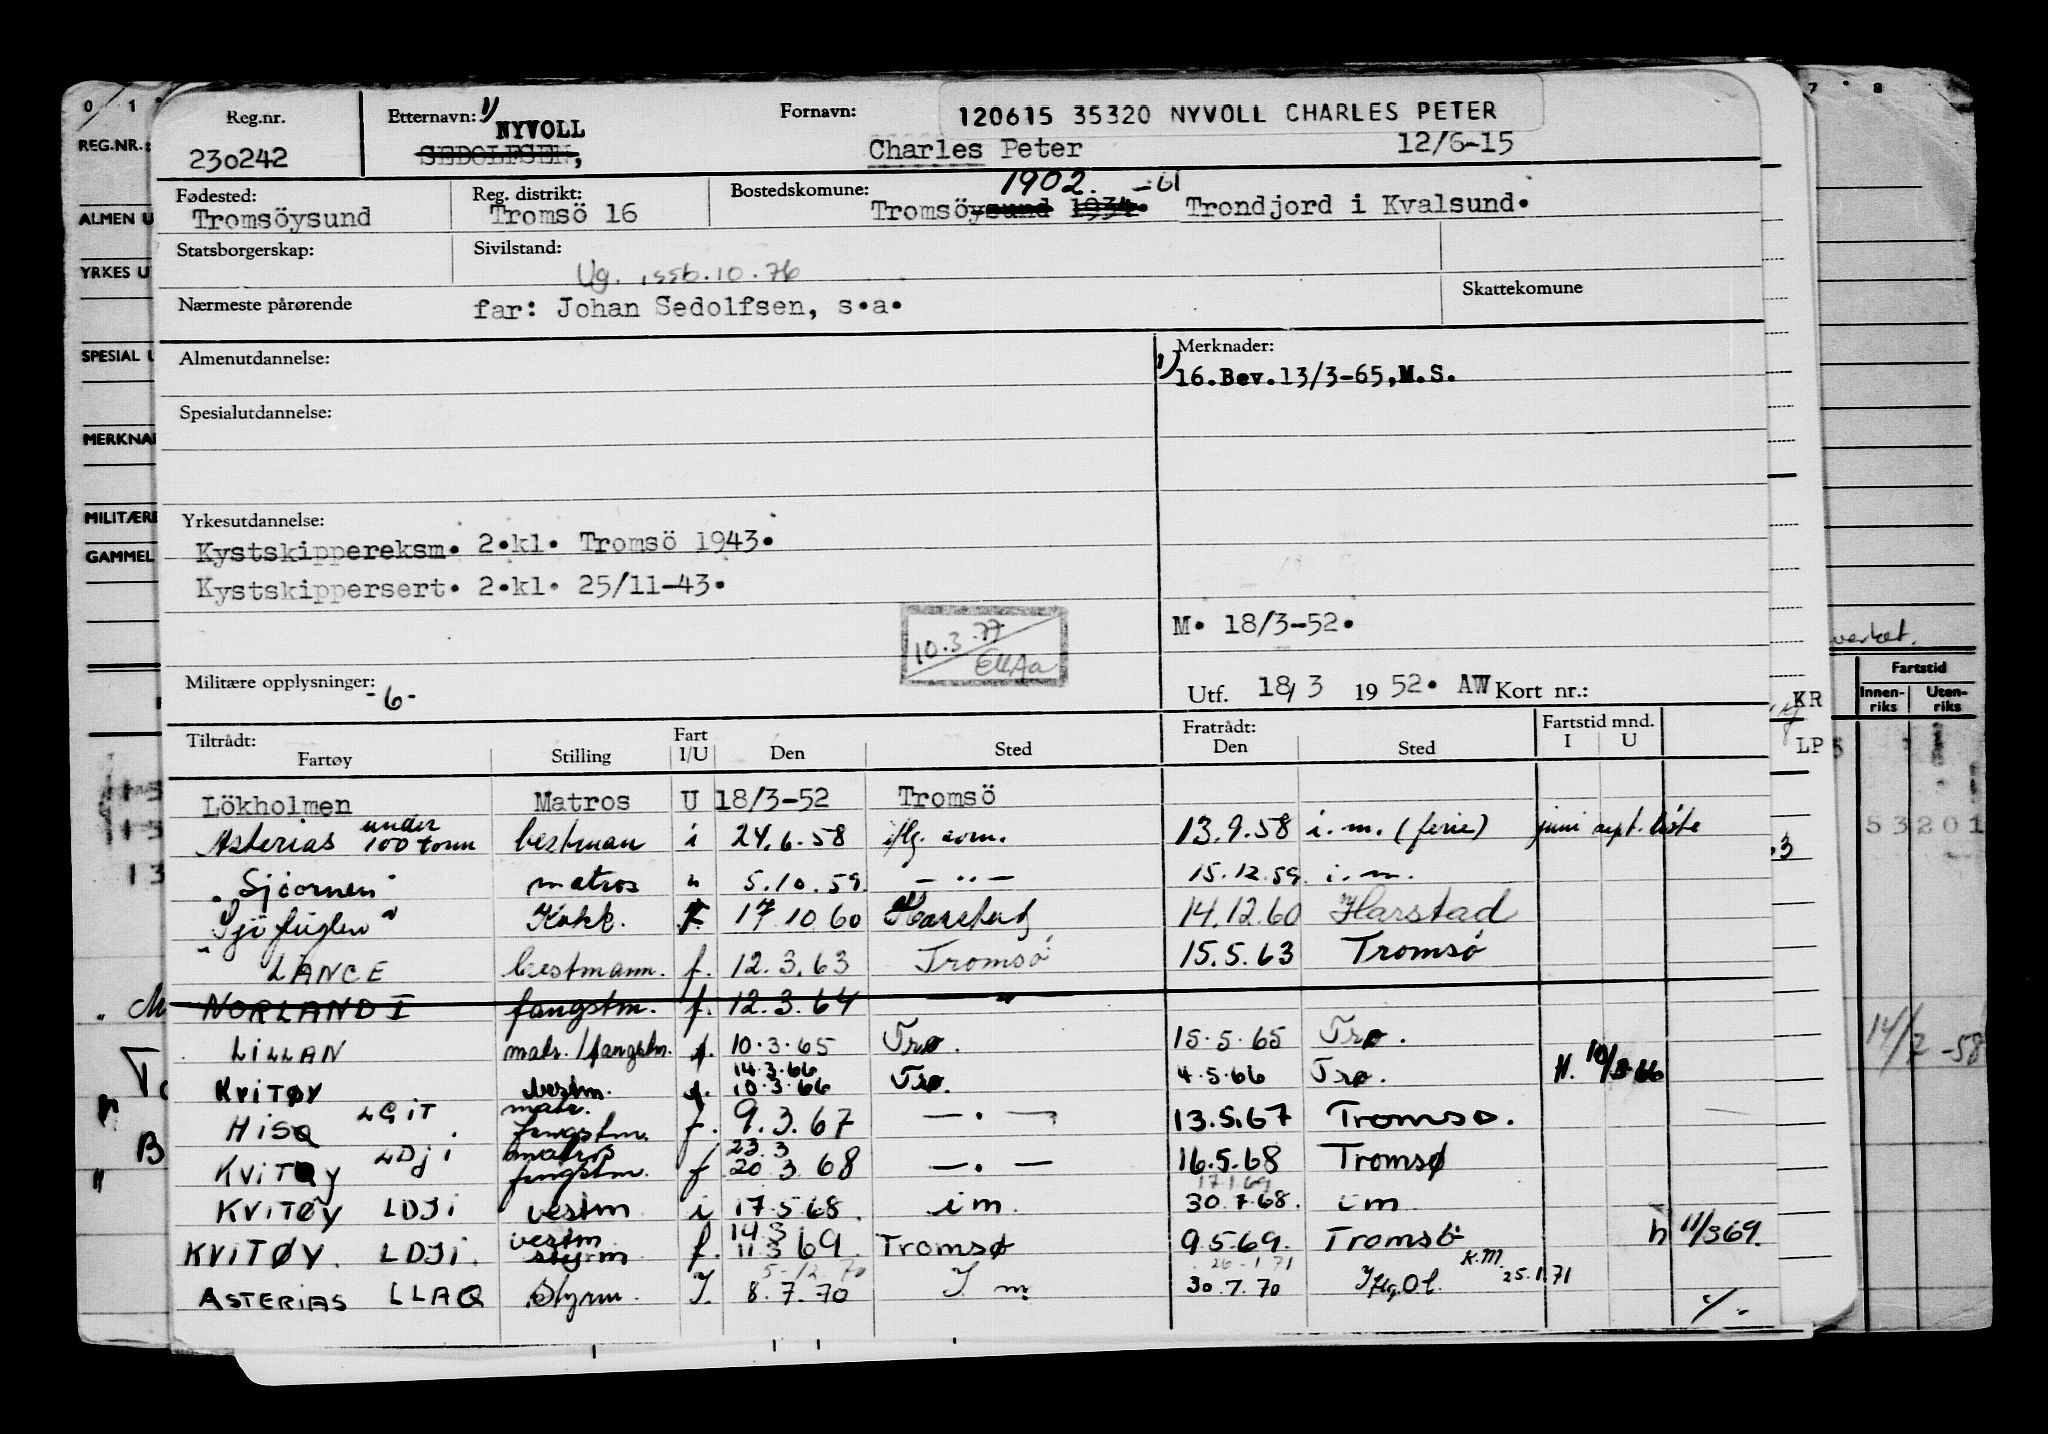 0 1 7 8
REG.NR.:
ALMEN U
YRKES U
SPESIAL U
MERKNA
MILITÆRE
GAMMEL
Reg.nr. Etternavn: 1) Fornavn: 120615 35320 NYVOLL CHARLES PETER
230242 NYVOLL
SEDOLFSEN, Charles Peter 12/6-15
Fødested: Reg. distrikt: Bostedskomune: 1902. -61
Tromsöysund Tromsö 16 Tromsöysund 1934. Trondjord i Kvalsund.
Statsborgerskap: Sivilstand:
Ug. 10.76
Nærmeste pårørende far: Johan Sedolfsen, s.a. Skattekomune
Almenutdannelse: Merknader:
1) 16.Bev.13/3-65,M.S.
Spesialutdannelse:
Yrkesutdannelse:
Kystskippereksm. 2.kl. Tromsö 1943.
Kystskippersert. 2.kl. 25/11-43.
10.3.77 M. 18/3-52.
verket.
Militære opplysninger: -6- Utf. 18/3 1952. AW Kort nr.:
KR
LP
Fartstid
Innen-riks Uten-riks
Tiltrådt: Fart Fratrådt: Fartstid mnd.
Fartøy Stilling I/U Den Sted Den Sted I U
Lökholmen Matros U 18/3-52 Tromsö
Asterias under 100 tonn bestman i 24.6.58 iflg. 13.9.58 i.m. (ferie) juni sept. liste
"Sjöørnen" matros " 5.10.59 — " — 15.12.59. i.m.
"Sjøfuglen" Kokk. 17 10 60 Harstad 14.12.60 Harstad
LANCE bestmann. f. 12.3.63 Tromsø 15.5.63 Tromsø
NORLAND I fangstm. f. 12.3.64 — " —
LILLAN matr./fangstm. f. 10.3.65 Trø. 15.5.65 Trø.
KVITØY bestm. f. 14.3.66 10.3.66 Trø. 4.5.66 Trø. H. 10/3-66
HISØ LGIT matr. fangstm. f. 9.3.67 — . — 13.5.67 Tromsø.
KVITØY LDJI matros fangstm. f 23.3 20 3 68 — . — 16.5.68 Tromsø
KVITØY LDJI bestm i 17.5.68. im. 17.1.69 30.7.68. im
KVITØY. LDJI. bestm styrm f. 14.3 11.3 69. Tromsø 9.5.69. Tromsö h 11/3 69.
ASTERIAS LLAQ Styrm. I. 5-12 70 8.7.70 I m 26-1 71 30.7.70 Iflg. O l. K.M. 25.1.71 ./.
5 3 2 0 1
14/2-58